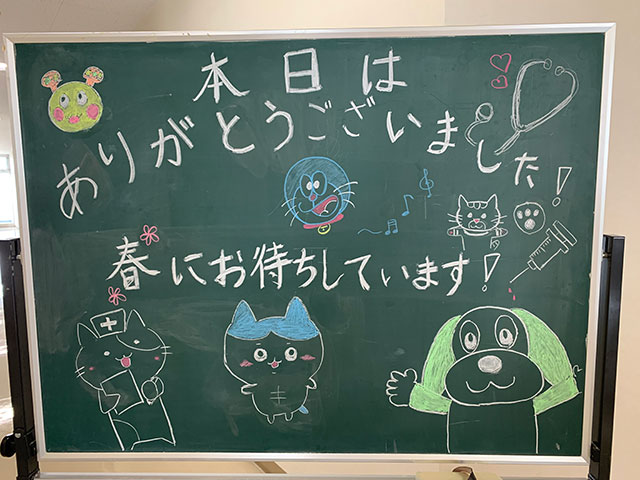 本日は
ありがとうございました!
春にお待ちしています!